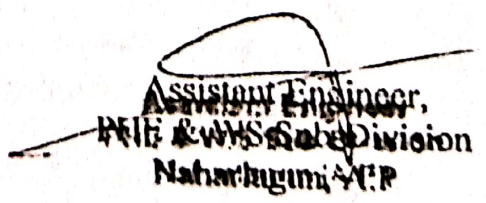 Assistant Engineer,
PHE & WS Sub-Division
Naharlagun, A.P